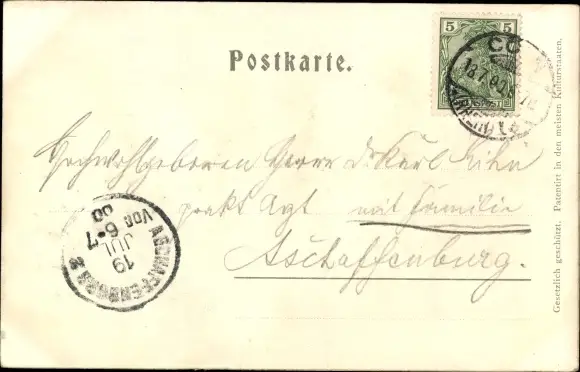 5 5
Postkarte.
Hochwohlgeboren Herr Dr Karl
prakt Arzt mit Familie
Aschaffenburg.
ASCHAFFENBURG 2
19
JUL
VOR 6-7
00
Gesetzlich geschützt. Patentirt in den meisten Kulturstaaten.